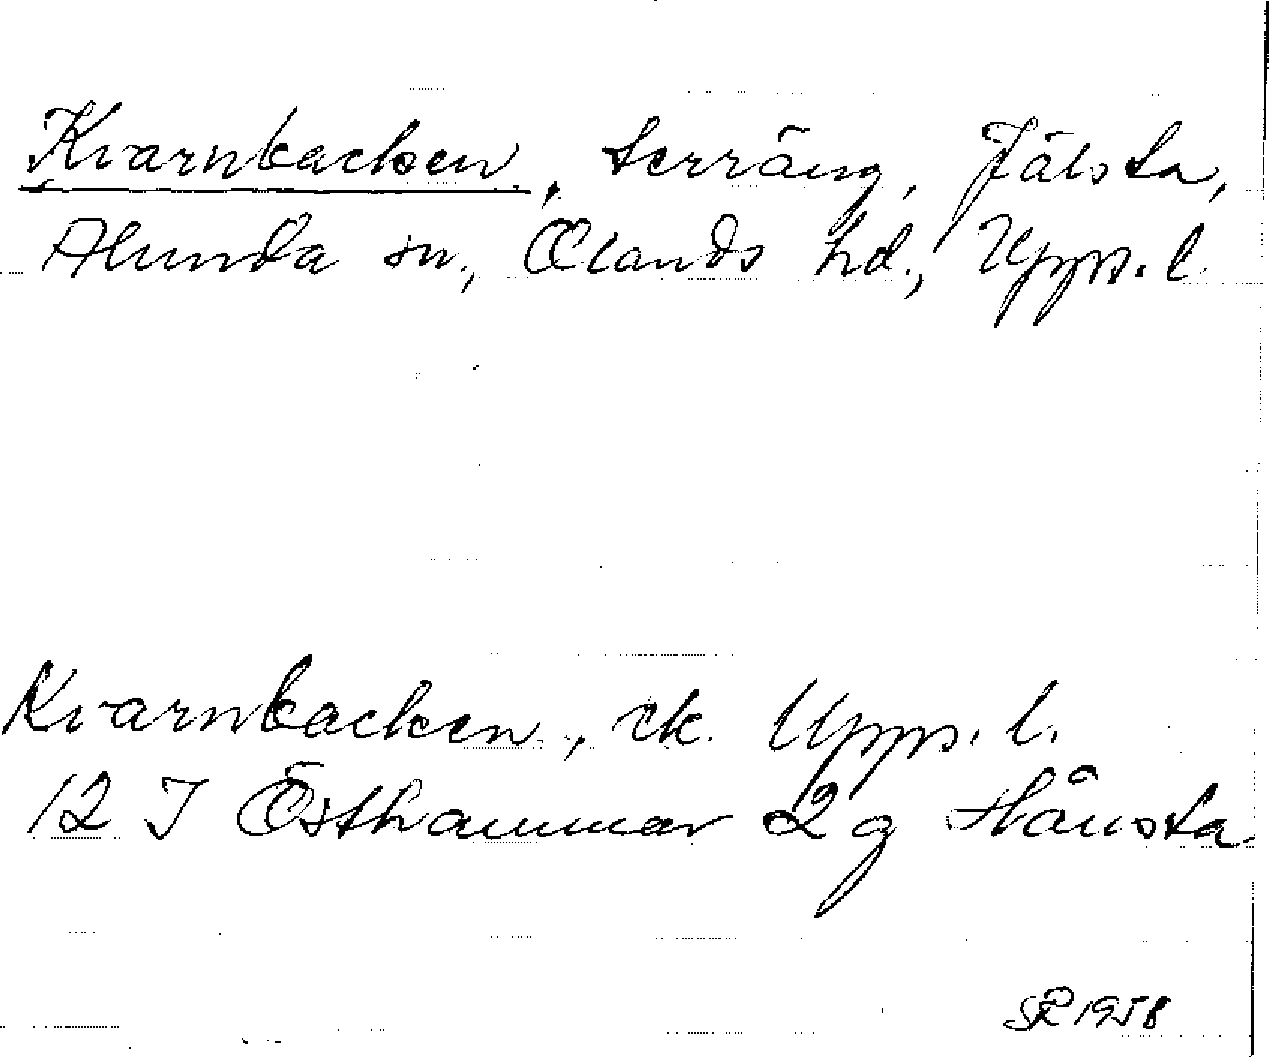 Kvarnbacken, terräng, Jälsta,
Alunda sn., Olands hd., Upps. l.
Kvarnbacken, ek. Upps. l.
12 I Östhammar 2 g Hånsta
SR 1958